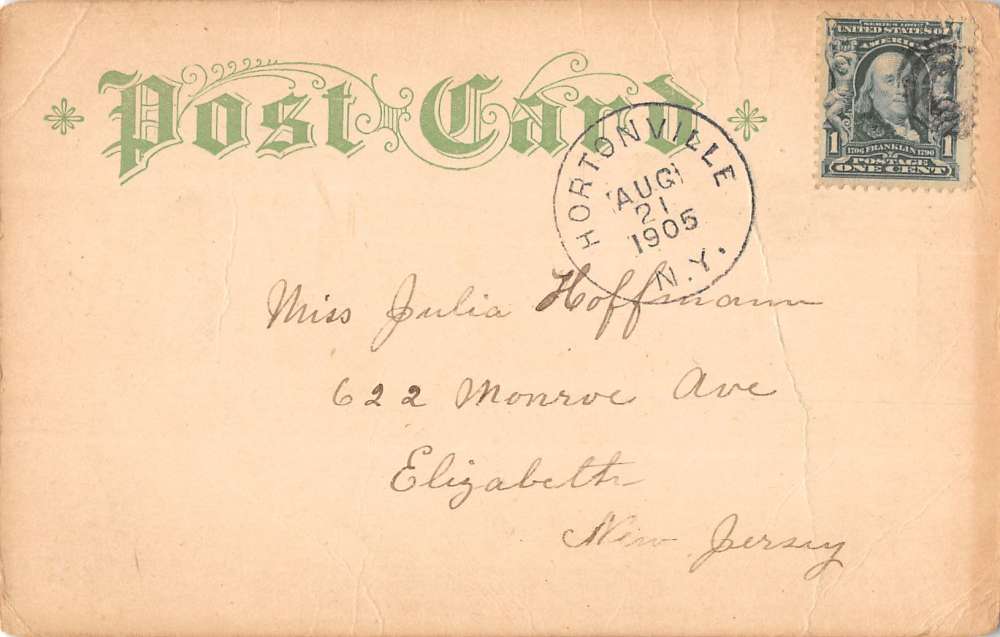 Post Card
SERIES 1902
UNITED STATES OF
AMERICA
1 1706 FRANKLIN 1790 1
POSTAGE
ONE CENT
HORTONVILLE
AUG
21
1905
N.Y.
Miss Julia Hoffmann
622 Monroe Ave
Elizabeth
New Jersey